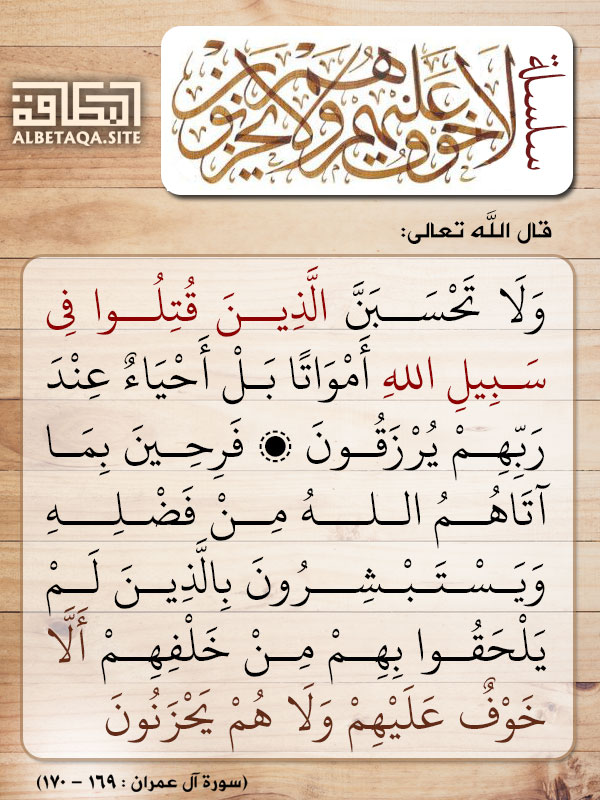 سلسلة
لا خوف عليهم ولا هم يحزنون
البطاقة
ALBETAQA.SITE
قال اللَّه تعالى:
وَلَا تَحْسَبَنَّ الَّذِينَ قُتِلُوا فِي
سَبِيلِ اللهِ أَمْوَاتًا بَلْ أَحْيَاءٌ عِنْدَ
رَبِّهِمْ يُرْزَقُونَ ۞ فَرِحِينَ بِمَا
آتَاهُمُ اللهُ مِنْ فَضْلِهِ
وَيَسْتَبْشِرُونَ بِالَّذِينَ لَمْ
يَلْحَقُوا بِهِمْ مِنْ خَلْفِهِمْ أَلَّا
خَوْفٌ عَلَيْهِمْ وَلَا هُمْ يَحْزَنُونَ
(سورة آل عمران : ١٦٩ - ١٧٠)